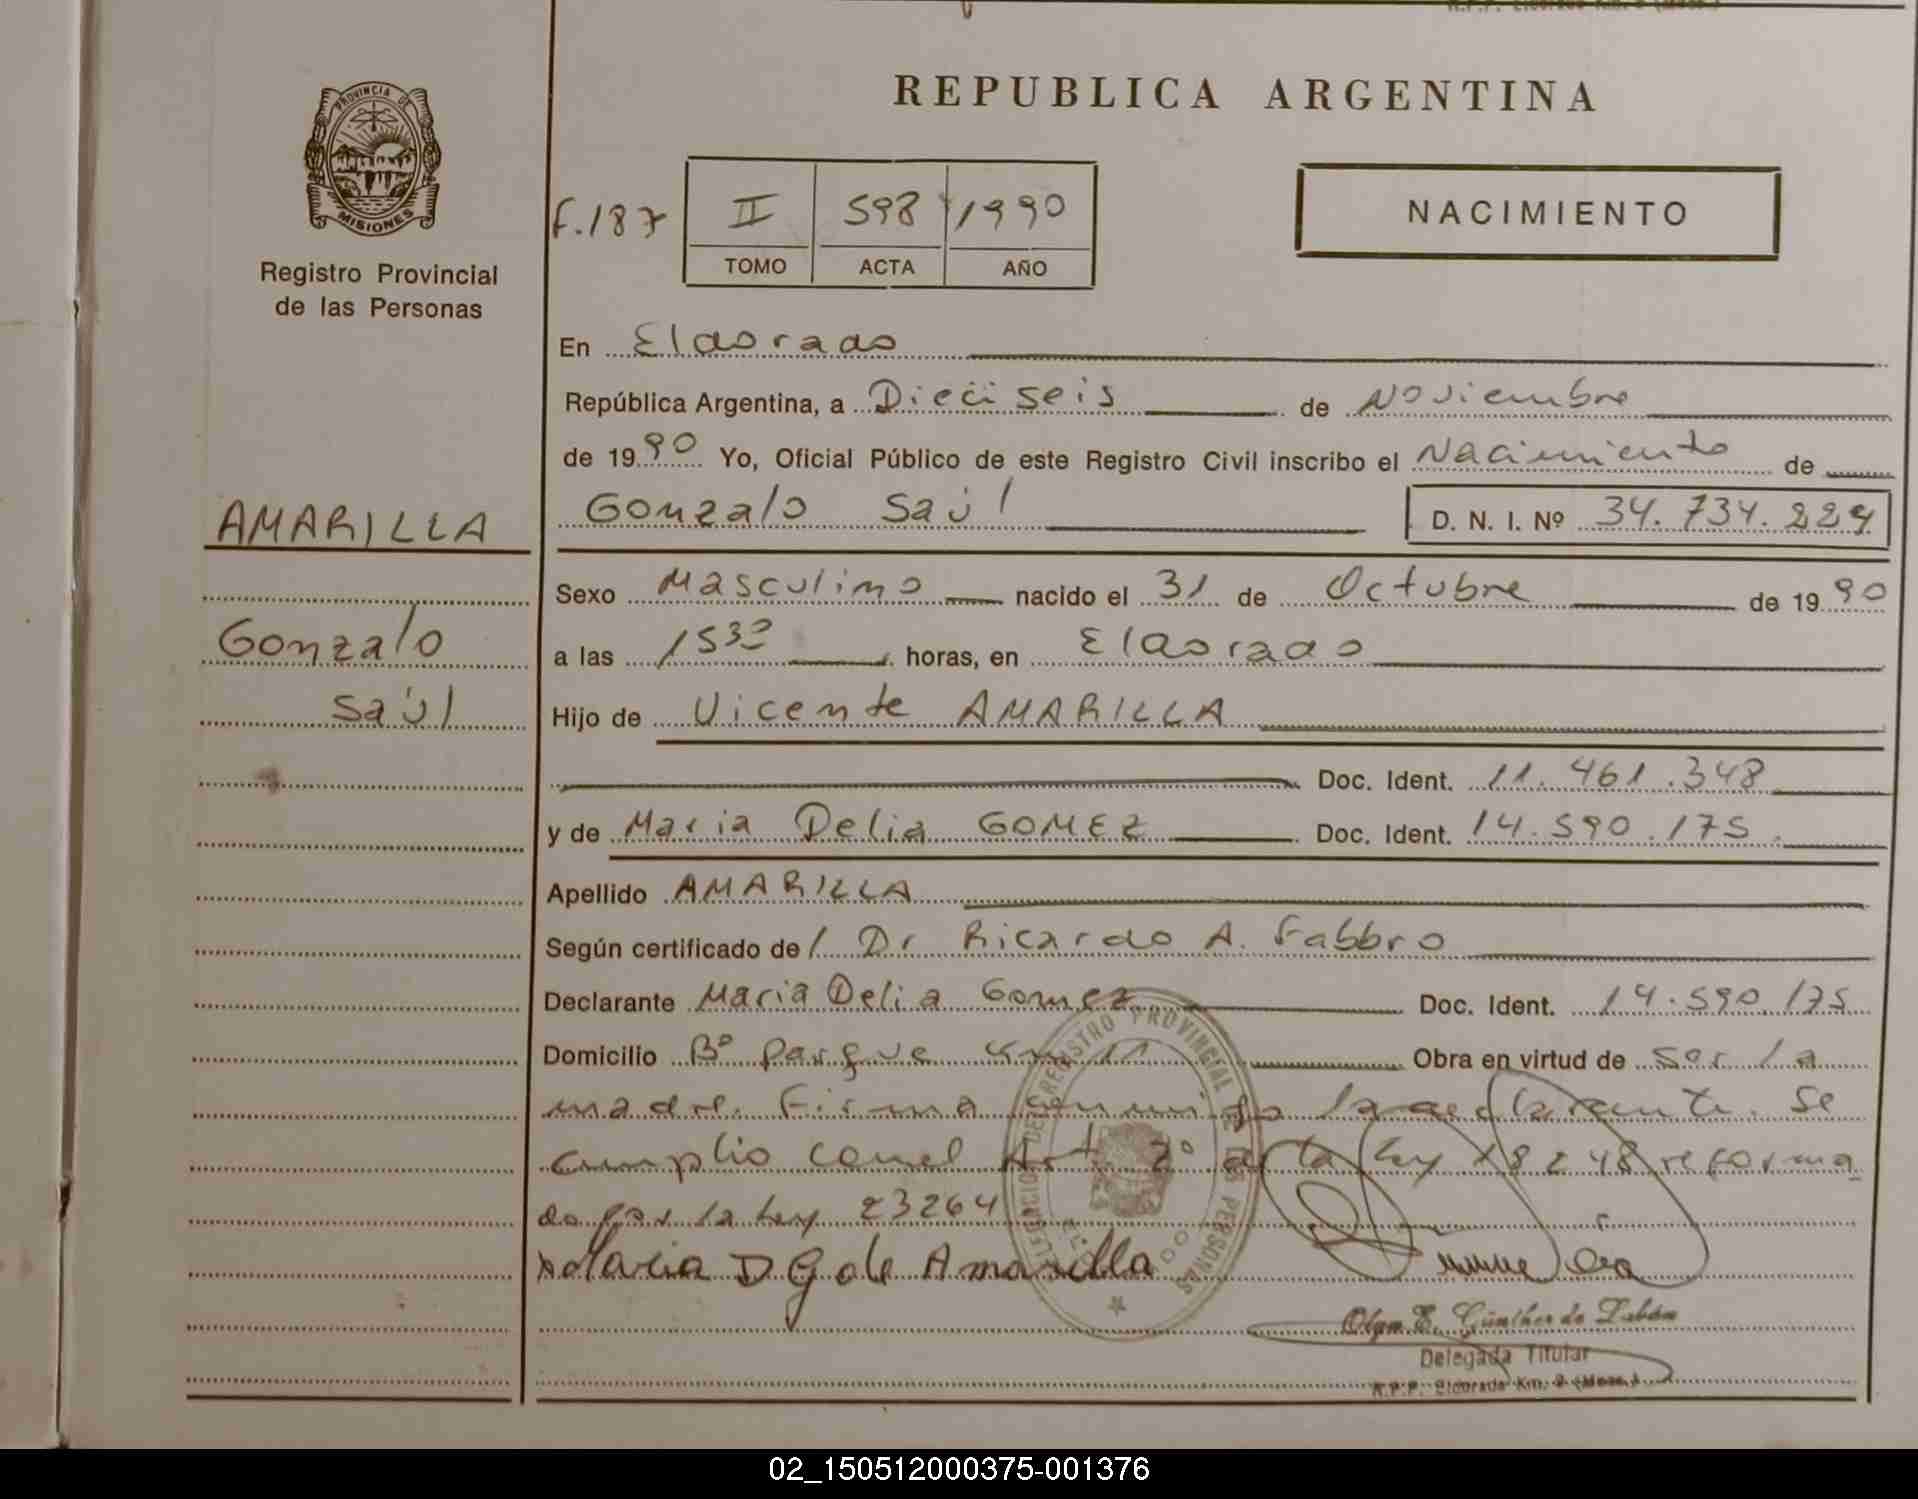 PROVINCIA DE
MISIONES
Registro Provincial
de las Personas
REPUBLICA ARGENTINA
F.187
II 598 1990
TOMO ACTA AÑO
NACIMIENTO
En Eldorado
República Argentina, a Dieciseis de Noviembre
de 1990 Yo, Oficial Público de este Registro Civil inscribo el Nacimiento de
AMARILLA
Gonzalo Saúl
D. N. I. Nº 34.734.224
Sexo Masculino nacido el 31 de Octubre de 1990
Gonzalo
Saúl
a las 15³⁰ horas, en Eldorado
Hijo de Vicente AMARILLA
Doc. Ident. 11.461.348
y de Maria Delia GOMEZ Doc. Ident. 14.590.175.
Apellido AMARILLA
Según certificado de / Dr Ricardo A. Fabbro
Declarante Maria Delia Gomez Doc. Ident. 14.590.175
Domicilio Bº Parque Km 11 Obra en virtud de ser la
madre. Firma conmigo la declarante. Se
cumplio con el Art. 2º de la Ley 18248 reforma
do por la Ley 23264
Maria D G de Amarilla
REGISTRO PROVINCIAL DE LAS PERSONAS
Olga E. Günther de
Delegada Titular
R.P.P. Eldorado Km. 9 (Mnes.)
02_150512000375-001376